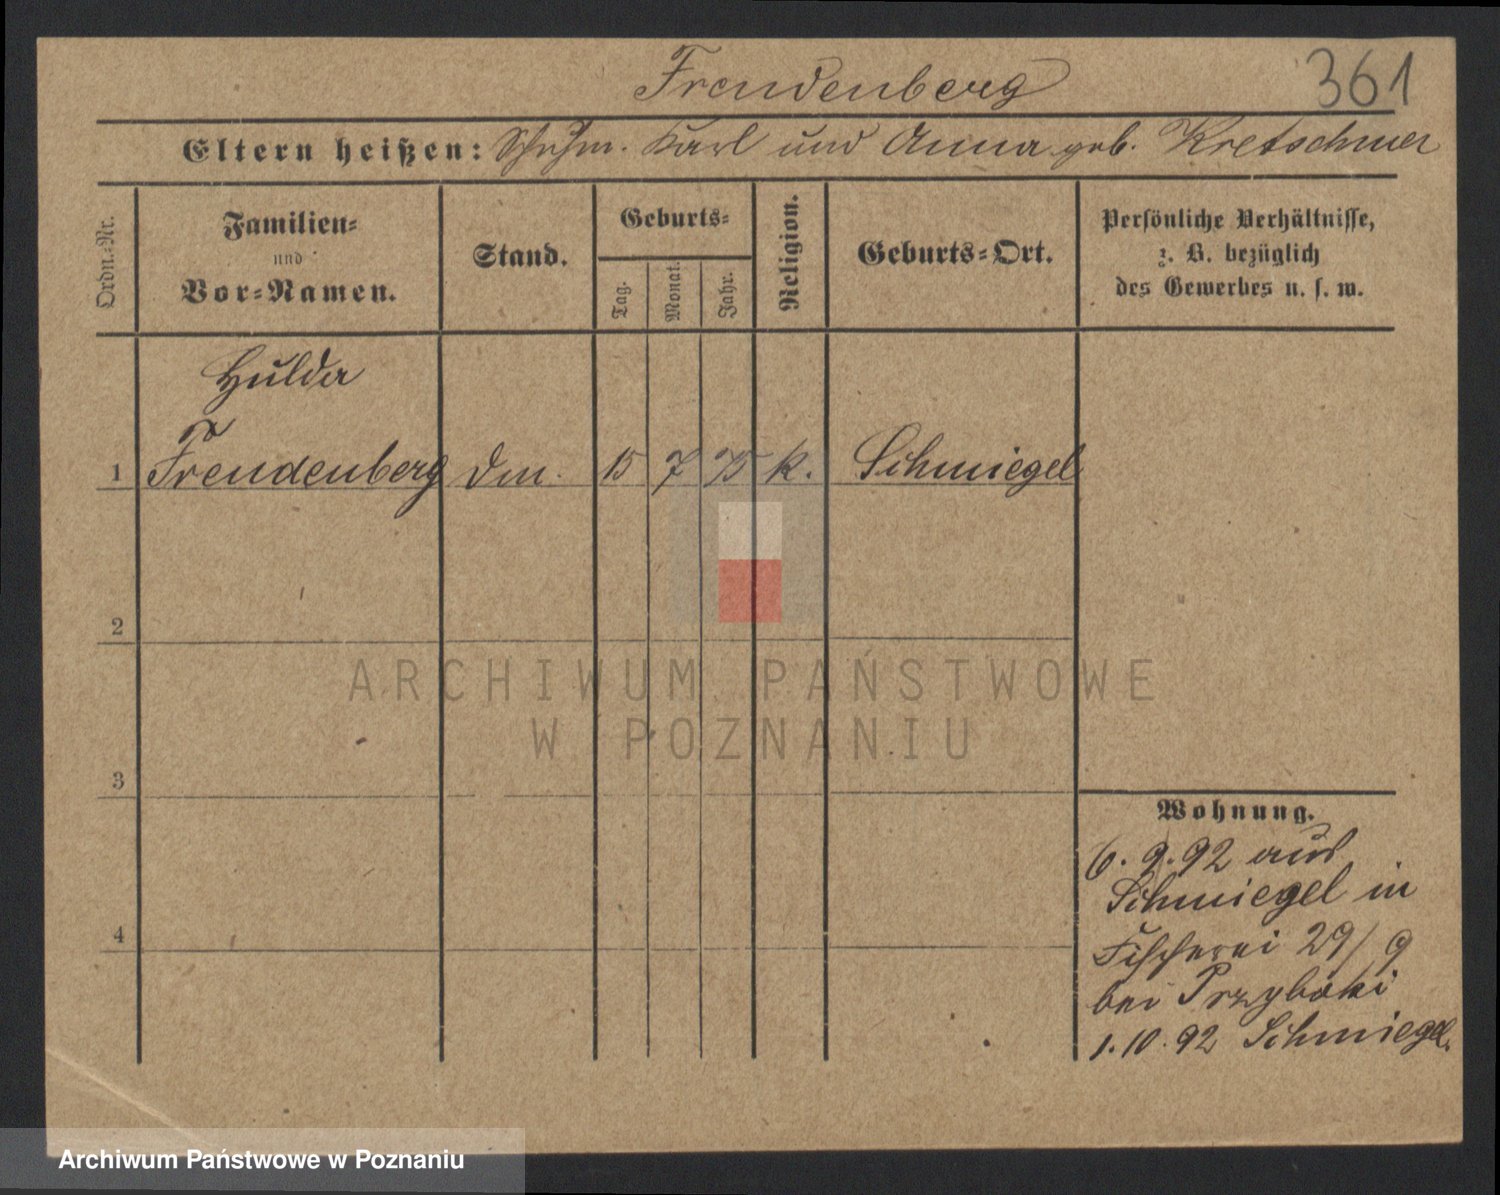 Freudenberg 361
Eltern heißen: Schuhm. Karl und Anna geb. Kretschmer
Ordn.-Nr.
Familien-
und
Vor-Namen.
Stand.
Geburts-
Tag. Monat. Jahr.
Religion.
Geburts-Ort.
Persönliche Verhältnisse,
z. B. bezüglich
des Gewerbes u. s. w.
Hulda
1 Freudenberg 15 7 75 k. Schmiegel
2
3
4
Wohnung.
6. 9. 92 aus
Schmiegel in
Fischerei 29/9
bei Przybski
1. 10. 92 Schmiegel.
ARCHIWUM PAŃSTWOWE
W POZNANIU
Archiwum Państwowe w Poznaniu